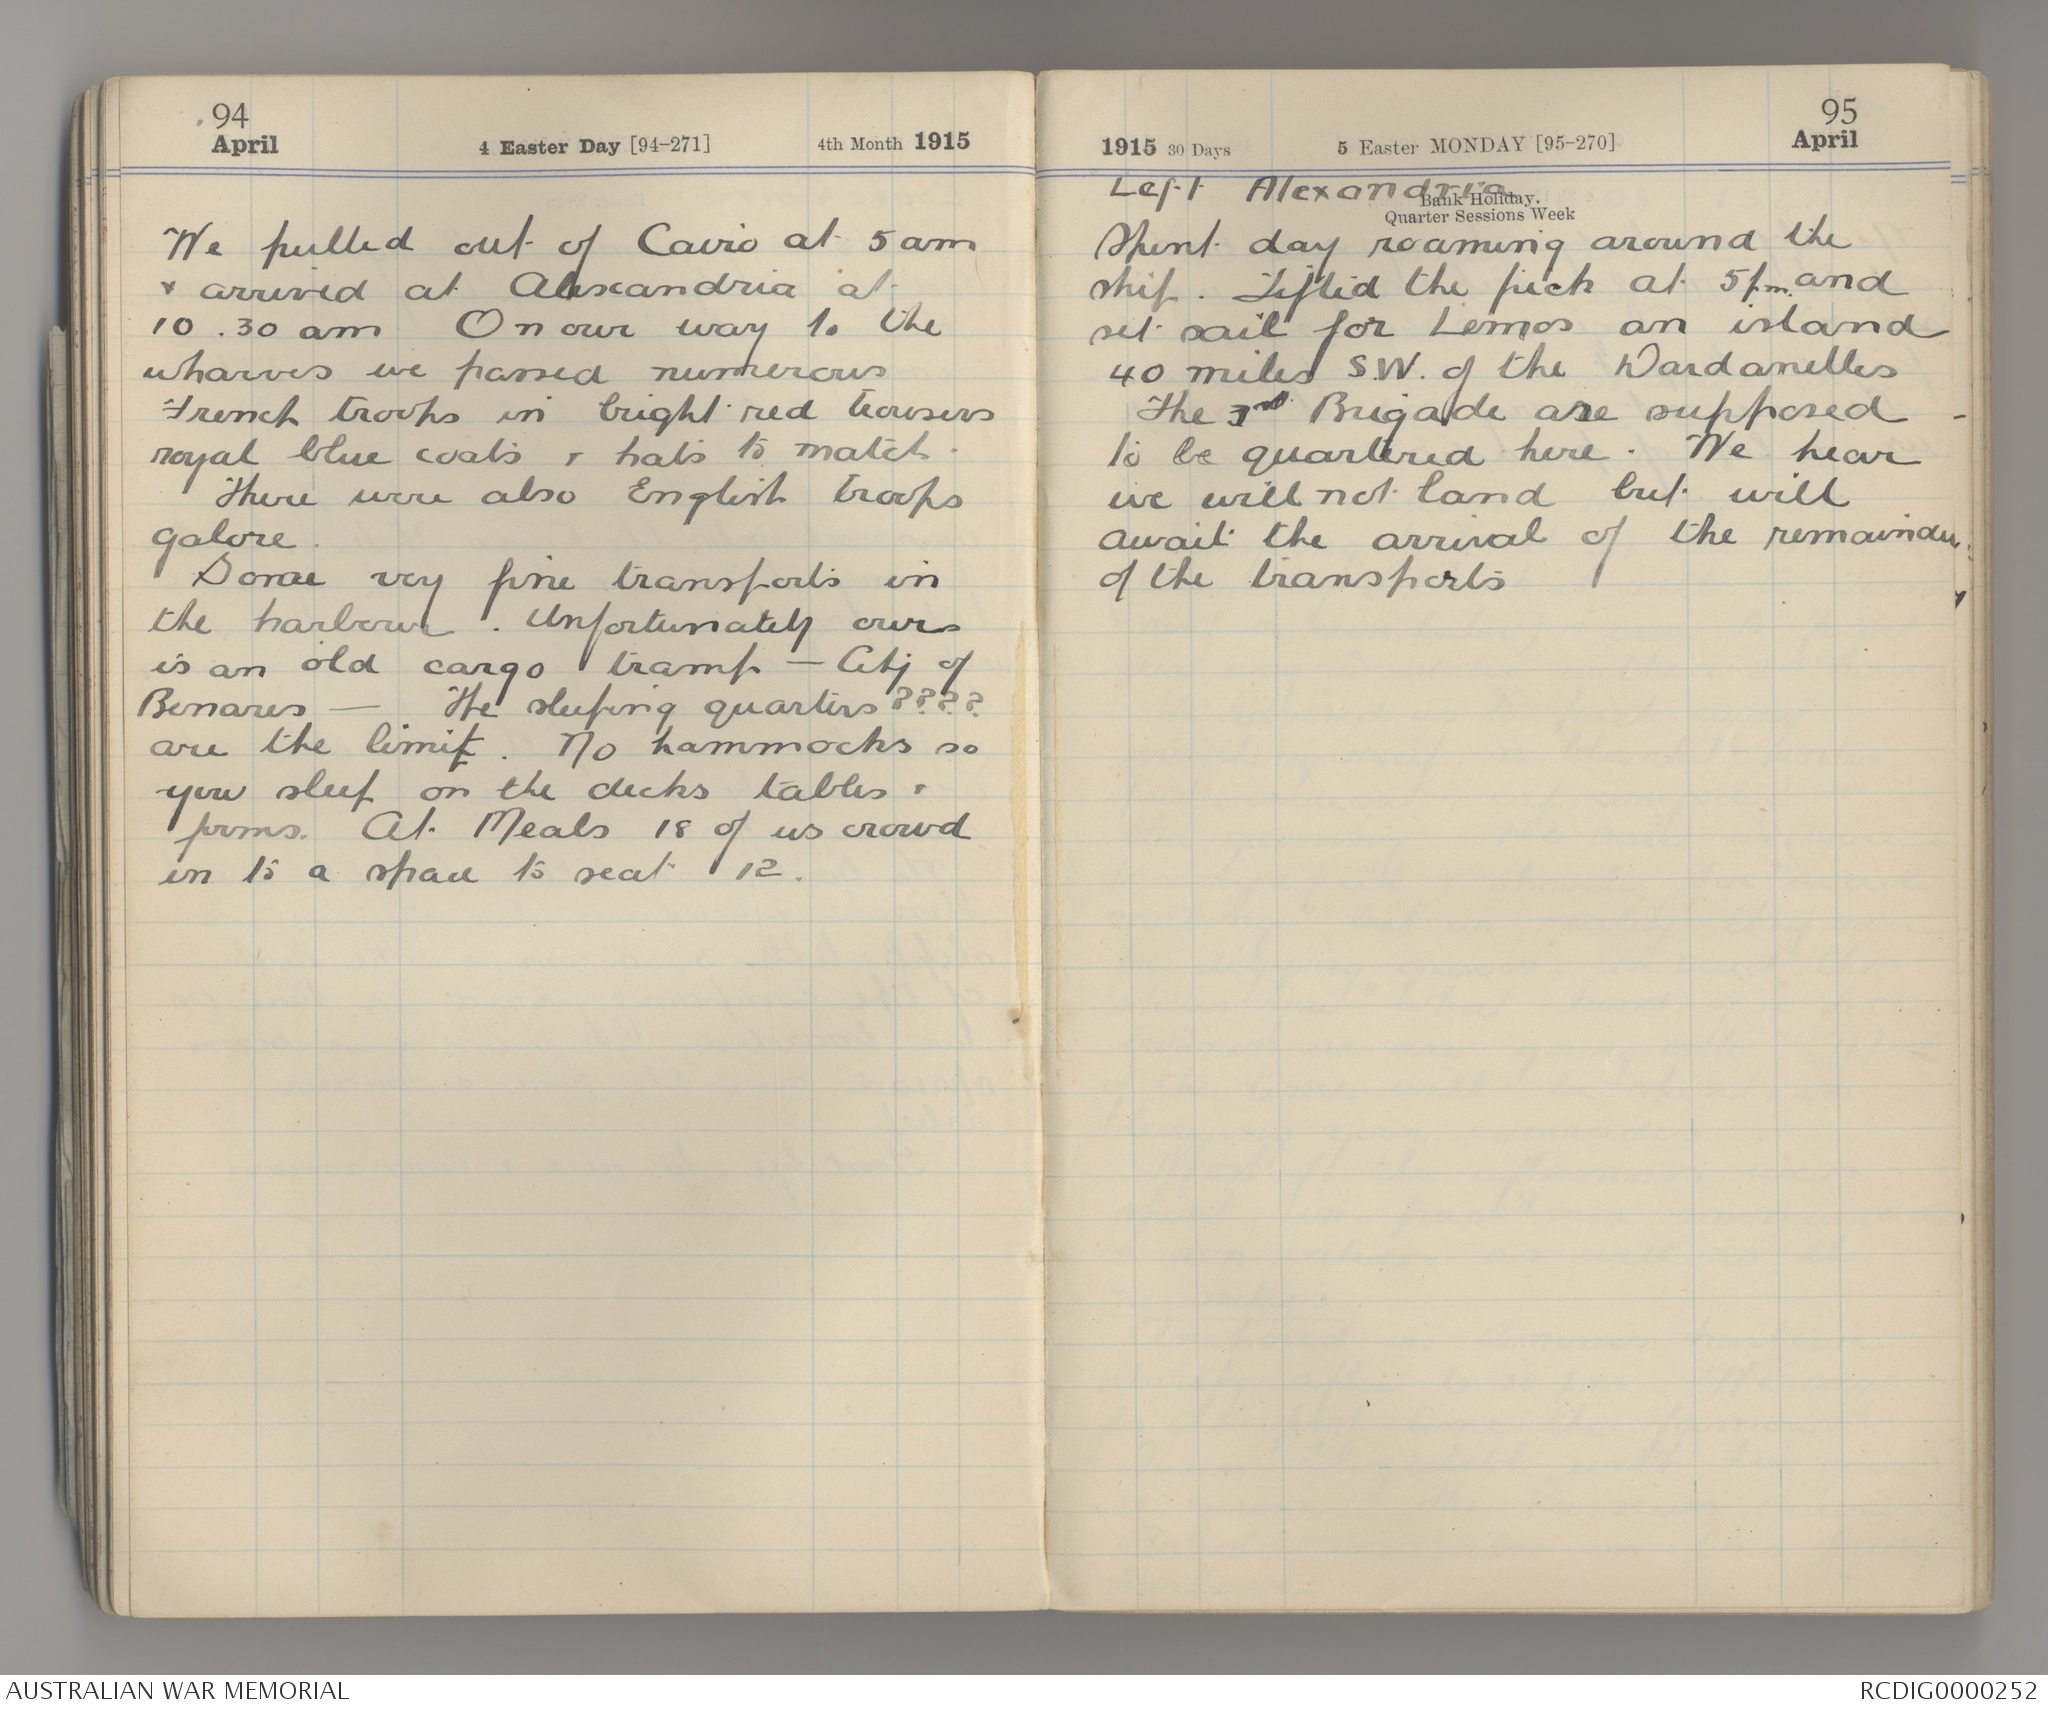 94
April
4 Easter Day [94-271]
4th Month 1915
We pulled out of Cairo at 5 am
& arrived at Alexandria at
10.30 am On our way to the
wharves we passed numerous
French troops in bright red trousers
royal blue coats & hats to match.
There were also English troops
galore.
Some very fine transports in
the harbour. Unfortunately ours
is an old cargo tramp — City of
Benares — The sleeping quarters ????
are the limit. No hammocks so
you sleep on the decks tables &
forms. At Meals 18 of us crowd
in to a space to seat 12.
95
April
1915 30 Days
5 Easter MONDAY [95-270]
Left Alexandria
Bank Holiday.
Quarter Sessions Week
Spent day roaming around the
ship. Lifted the pick at 5 p.m. and
set sail for Lemos an island
40 miles S.W. of the Dardanelles
The 3rd Brigade are supposed
to be quartered here. We hear
we will not land but will
await the arrival of the remainder
of the transports
AUSTRALIAN WAR MEMORIAL
RCDIG0000252